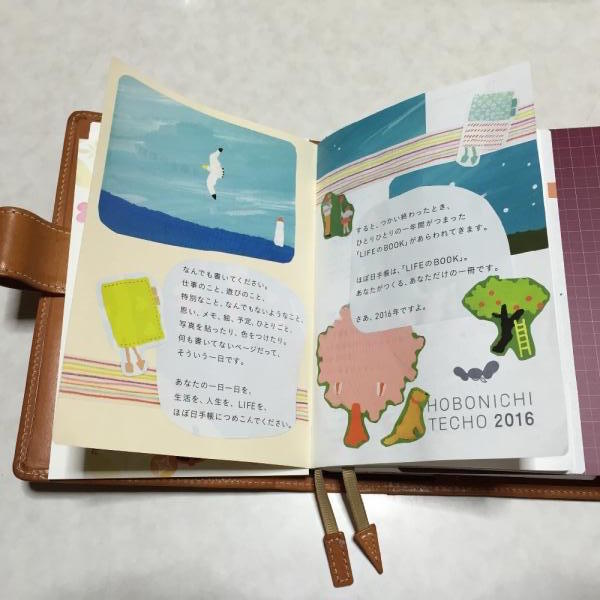 なんでも書いてください。
仕事のこと、遊びのこと、
特別なこと、なんでもないようなこと、
思い、メモ、絵、予定、ひとりごと、
写真を貼ったり、色をつけたり。
何も書いてないページだって、
そういう一日です。
あなたの一日一日を、
生活を、人生を、LIFEを、
ほぼ日手帳につめこんでください。
すると、つかい終わったとき、
ひとりひとりの一年間がつまった
「LIFEのBOOK」があらわれてきます。
ほぼ日手帳は、「LIFEのBOOK」。
あなたがつくる、あなただけの一冊です。
さあ、2016年ですよ。
HOBONICHI
TECHO 2016